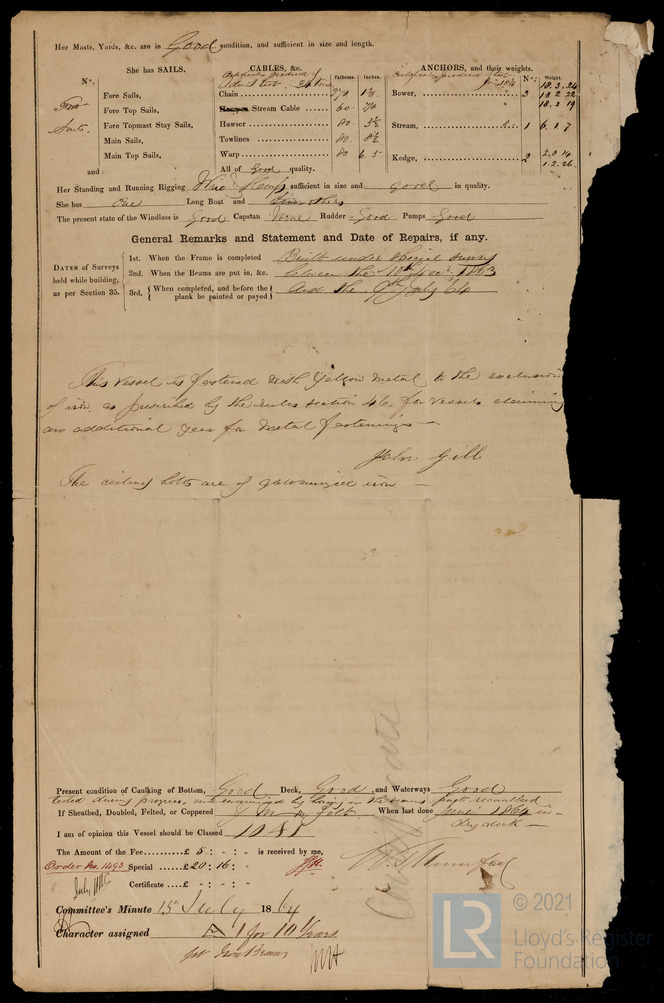 Her Masts, Yards, &c. are in Good condition, and sufficient in size and length.
She has SAILS. CABLES, &c. ANCHORS, and their weights.
Nº. Fathoms. Inches. Nº. Weight.
Fore Sails, Chain 1 Bower, 3 18.3.24
Two Fore Top Sails, Hempen Stream Cable 60 18.2.22
Suits. Fore Topmast Stay Sails, Hawser 80 5½ 18.2.19
Main Sails, Towlines 80 8½ Stream, 1 6.1.7
Main Top Sails, Warp 80 6.5 Kedge, 2 2.0.14
and All of Good quality. 1.2.26
Her Standing and Running Rigging Wire & Hemp sufficient in size and good in quality.
She has One Long Boat and
The present state of the Windlass is Good Capstan None Rudder Good Pumps Good
General Remarks and Statement and Date of Repairs, if any.
DATES of Surveys held while building, as per Section 35.
1st. When the Frame is completed Built under Special Survey
2nd. When the Beams are put in, &c. between the 10th 1863
3rd. { When completed, and before the plank be painted or payed } and the 9th July 64
This vessel is fastened with Yellow Metal to the exclusion
of iron, as prescribed by the rules section 46, for vessels claiming
an additional year for metal fastenings —
John Gill
The ceiling bolts are of galvanized iron —
Present condition of Caulking of Bottom, Good Deck, Good and Waterways Good
tested during progress,
If Sheathed, Doubled, Felted, or Coppered Felt When last done June 1864 in
dry dock —
I am of opinion this Vessel should be Classed 10 A 1
The Amount of the Fee......£ 5 : - : - is received by me,
Order No. 1493 Special ......£20 : 16 : -
July
Certificate ....£ - : - : -
Certificate
Committee's Minute 15th July 1864
Character assigned A 1 for 10 Years
Iron Beams
© 2021
LR Lloyd's Register
Foundation